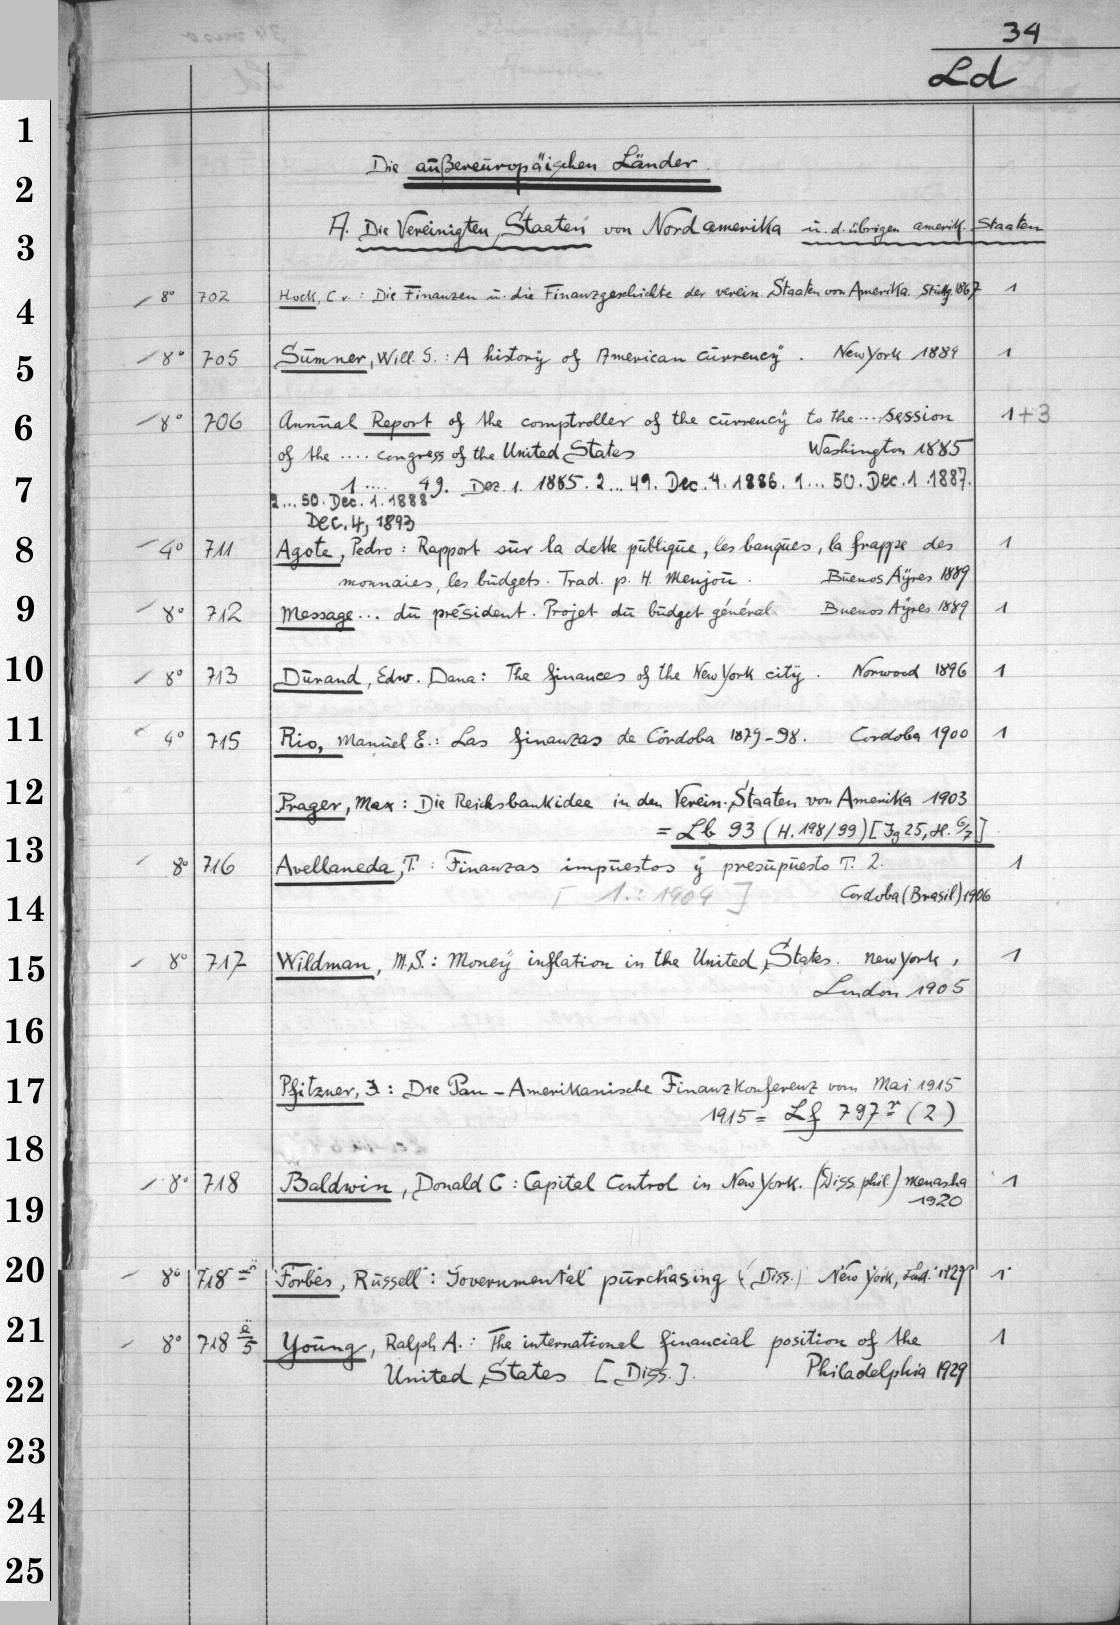 34
Ld
1
Die außereuropäischen Länder.
2
A. Die Vereinigten Staaten von Nordamerika u. d. übrigen amerik. Staaten
3
8° 702 Hock, C. v.: Die Finanzen u. die Finanzgeschichte der verein. Staaten von Amerika. Stuttg. 1867 1
4
8° 705 Sumner, Will. S.: A history of American currency. New York 1884 1
5
8° 706 Annual Report of the comptroller of the currency to the .... session 1+3
6
of the .... congress of the United States Washington 1885
1 .... 49. Dez. 1. 1885. 2... 49. Dec. 4. 1886. 1... 50. Dec. 1. 1887.
7
2... 50. Dec. 1. 1888
Dec. 4, 1893
8
4° 711 Agote, Pedro: Rapport sur la dette publique, les banques, la frappe des 1
monnaies, les budgets. Trad. p. H. Menjou. Buenos Ayres 1889
9
8° 712 Message... du président. Projet du budget général. Buenos Ayres 1889 1
10
8° 713 Durand, Edw. Dana: The finances of the New York city. Norwood 1896 1
11
4° 715 Rio, Manuel E.: Las finanzas de Córdoba 1879-98. Cordoba 1900 1
12
Prager, Max: Die Reichsbankidee in den Verein. Staaten von Amerika 1903
= Lb 93 (H. 198/99) [Jg 25, H. 6/7]
13
8° 716 Avellaneda, T.: Finanzas impuestos y presupuesto T. 2. 1
[ 1.: 1904 ] Cordoba (Brasil) 1906
14
15
8° 717 Wildman, M.S.: Money inflation in the United States. New York, 1
London 1905
16
17
Pfitzner, J.: Die Pan-Amerikanische Finanzkonferenz vom Mai 1915
1915 = Lf 797 r (2)
18
8° 718 Baldwin, Donald C: Capital Control in New York. (Diss. phil.) Menasha 1
19
1920
20
8° 718 n Forbes, Russell: Governmental purchasing (Diss.) New York, Lond. 1929 1
21
8° 718 ä/5 Young, Ralph A.: The international financial position of the 1
United States [Diss.]. Philadelphia 1929
22
23
24
25